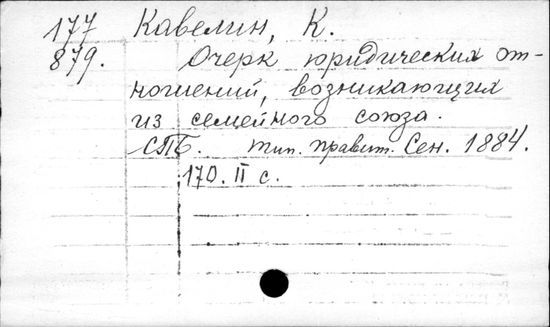 177 Кавелин, К.
879. Очерк юридических от-
ношений, возникающих
из семейного союза.
СПБ. тип. правит. Сен. 1884.
170. II с.